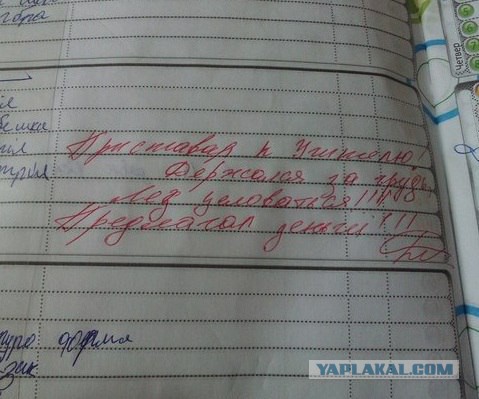 гора
Четвер
Приставал к учителю!
Держался за грудь
Лез целоваться!!!!
Предлагал деньги!!!
форма
зик
YAPLAKAL.COM